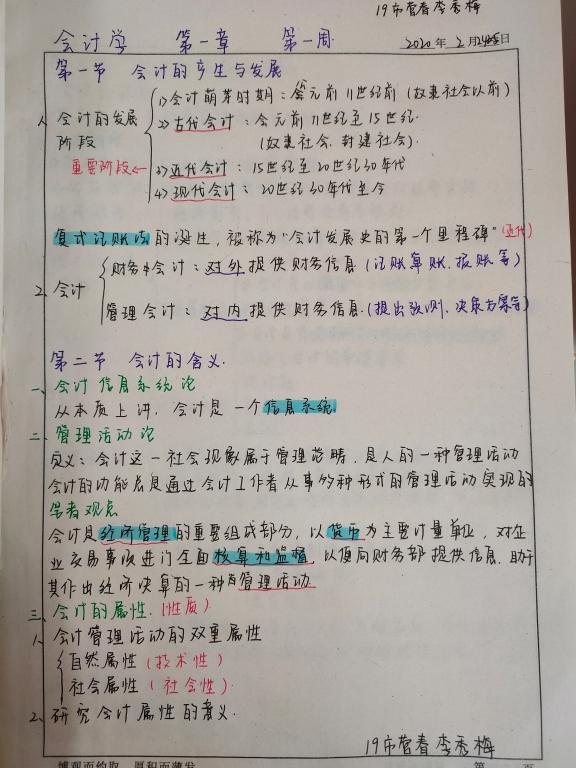 19市营春李秀梅
会计学 第一章 第一周 2020年2月24日
第一节 会计的产生与发展
1、会计的发展阶段
1)会计萌芽时期:公元前11世纪前(奴隶社会以前)
2)古代会计:公元前11世纪至15世纪.
(奴隶社会、封建社会)
重要阶段←
3)近代会计:15世纪至20世纪30年代
4)现代会计:20世纪30年代至今
复式记账法的诞生,被称为"会计发展史的第一个里程碑"(近代)
2、会计
财务会计:对外提供财务信息(记账算账、报账等)
管理会计:对内提供财务信息.(提出预测、决策方案等)
第二节 会计的含义.
一、会计信息系统论
从本质上讲,会计是一个信息系统.
二、管理活动论
定义:会计这一社会现象属于管理范畴,是人的一种管理活动
会计的功能总是通过会计工作者从事的种形式的管理活动实现的
笔者观点
会计是经济管理的重要组成部分,以货币为主要计量单位,对企
业交易事项进行全面核算和监督,以便向财务部提供信息,助于
其作出经济决算的一种管理活动.
三、会计的属性.(性质)
1、会计管理活动的双重属性
自然属性(技术性)
社会属性(社会性).
2、研究会计属性的意义.
19市营春李秀梅
博观而约取 厚积而薄发 第 页